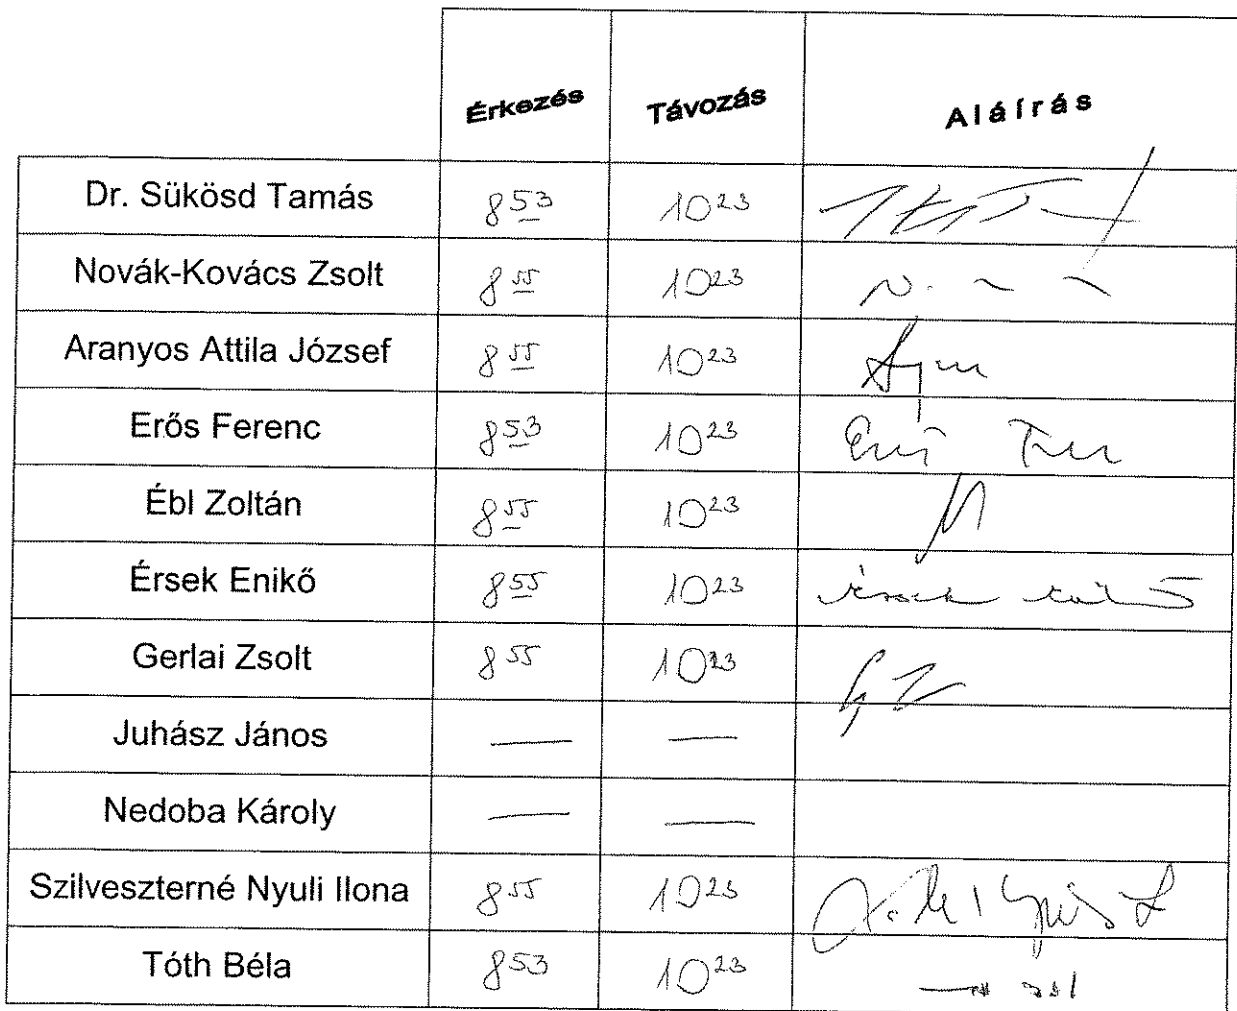 Érkezés Távozás Aláírás
Dr. Sükösd Tamás 8 53 10 23
Novák-Kovács Zsolt 8 55 10 23
Aranyos Attila József 8 55 10 23
Erős Ferenc 8 53 10 23
Ébl Zoltán 8 55 10 23
Érsek Enikő 8 55 10 23
Gerlai Zsolt 8 55 10 23
Juhász János — —
Nedoba Károly — —
Szilveszterné Nyuli Ilona 8 55 10 23
Tóth Béla 8 53 10 23